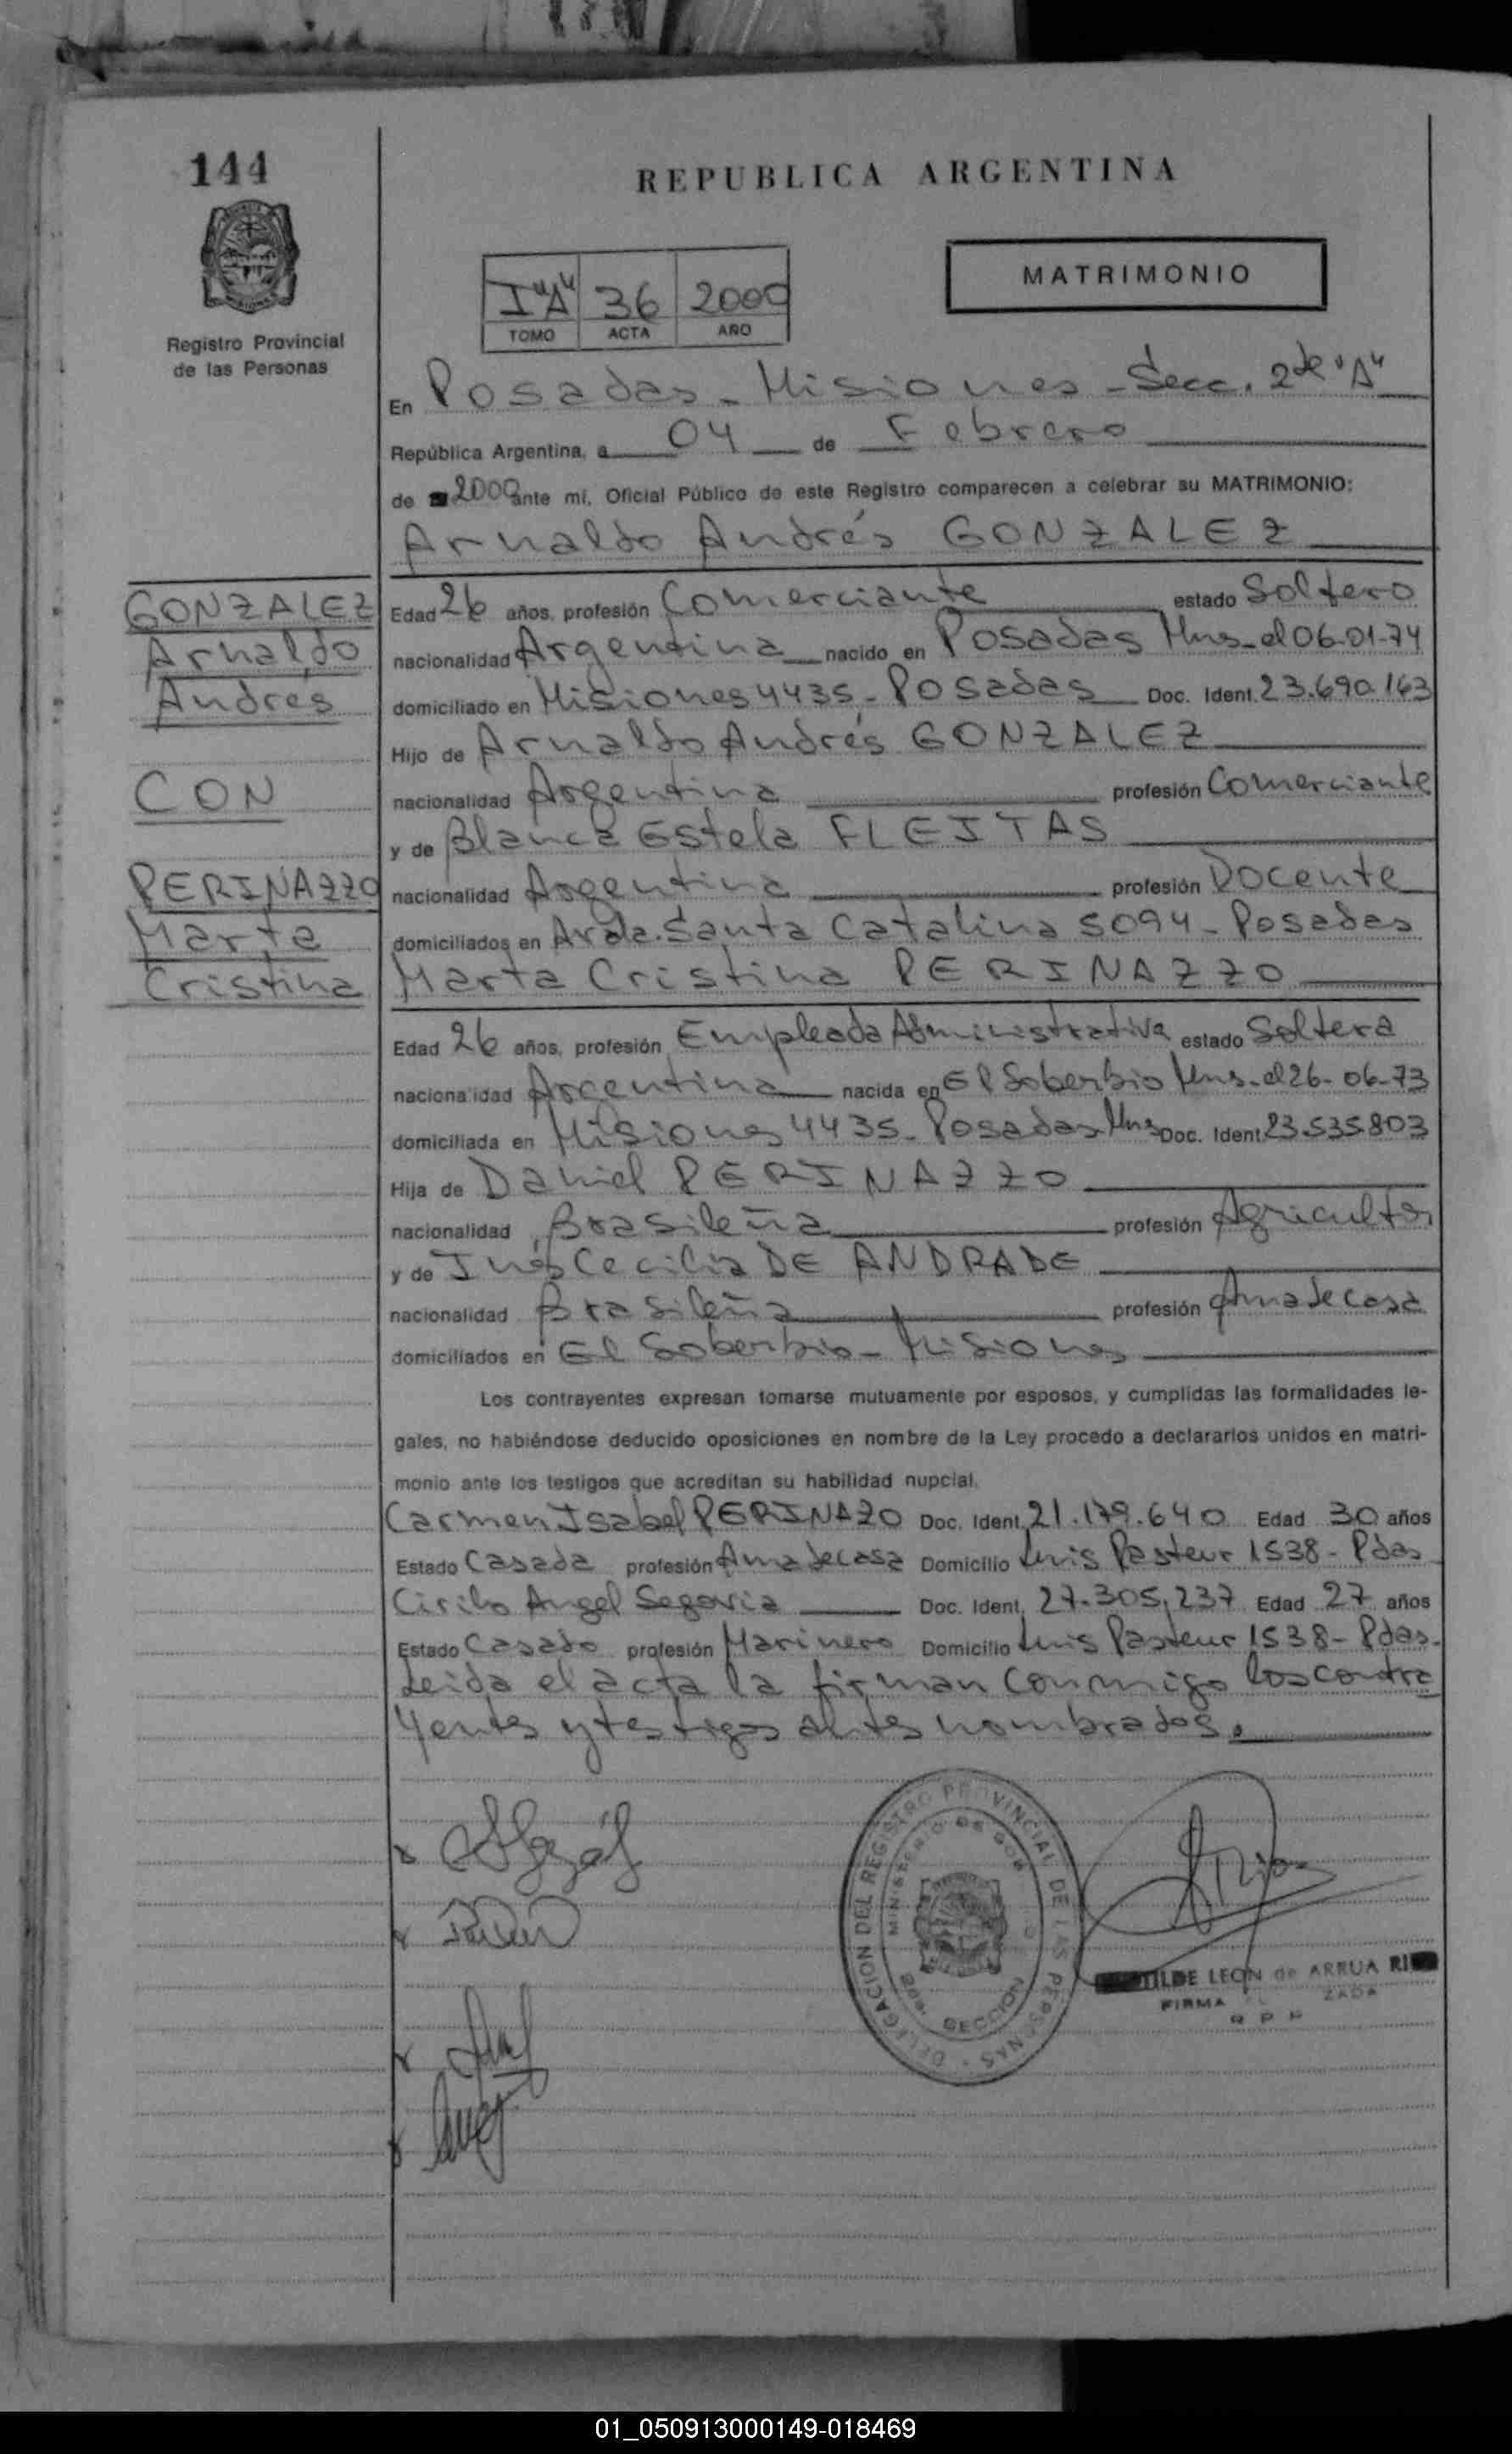 144
REPUBLICA ARGENTINA
Registro Provincial
de las Personas
I "A" 36 2000
TOMO ACTA AÑO
MATRIMONIO
En Posadas - Misiones - Secc. 2de "A"
República Argentina, a 04 de Febrero
de 2000 ante mí, Oficial Público de este Registro comparecen a celebrar su MATRIMONIO:
Arnaldo Andrés GONZALEZ
GONZALEZ
Arnaldo
Andrés
CON
PERINAZZO
Marta
Cristina
Edad 26 años, profesión Comerciante estado Soltero
nacionalidad Argentina nacido en Posadas Mns. el 06-01-74
domiciliado en Misiones 4435 - Posadas Doc. Ident. 23.690.163
Hijo de Arnaldo Andrés GONZALEZ
nacionalidad Argentina profesión Comerciante
y de Blanca Estela FLEITAS
nacionalidad Argentina profesión Docente
domiciliados en Avda. Santa Catalina 5094 - Posadas
Marta Cristina PERINAZZO
Edad 26 años, profesión Empleada Administrativa estado Soltera
nacionalidad Argentina nacida en El Soberbio Mns. el 26-06-73
domiciliada en Misiones 4435 - Posadas Mns Doc. Ident. 23.535.803
Hija de Daniel PERINAZZO
nacionalidad Brasileña profesión Agricultor
y de Inés Cecilia DE ANDRADE
nacionalidad Brasileña profesión Ama de casa
domiciliados en El Soberbio - Misiones
Los contrayentes expresan tomarse mutuamente por esposos, y cumplidas las formalidades le-
gales, no habiéndose deducido oposiciones en nombre de la Ley procedo a declararlos unidos en matri-
monio ante los testigos que acreditan su habilidad nupcial.
Carmen Isabel PERINAZO Doc. Ident. 21.179.640 Edad 30 años
Estado Casada profesión Ama de casa Domicilio Luis Pasteur 1538 - Pdas
Cirilo Angel Segovia Doc. Ident. 27.305.237 Edad 27 años
Estado Casado profesión Marinero Domicilio Luis Pasteur 1538 - Pdas.
Leida el acta la firman conmigo los contra
yentes y testigos antes nombrados.
DELEGACION DEL REGISTRO PROVINCIAL DE LAS PERSONAS
MINISTERIO DE GOB
SECCION
LEON de ARRUA
FIRMA
01_050913000149-018469